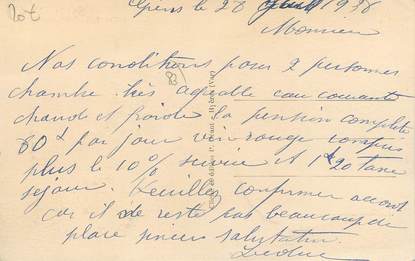 Giens le 28 Juillet 1938
Monsieur
Nos conditions pour 2 personnes
chambre très agréable eau courante
chaude et froide la pension complète
80 par jour vin rouge compris
plus le 10% service et 1 20 taxe
séjour. Veuillez confirmer avant
car il ne reste pas beaucoup de
place sincères salutations
Leduc